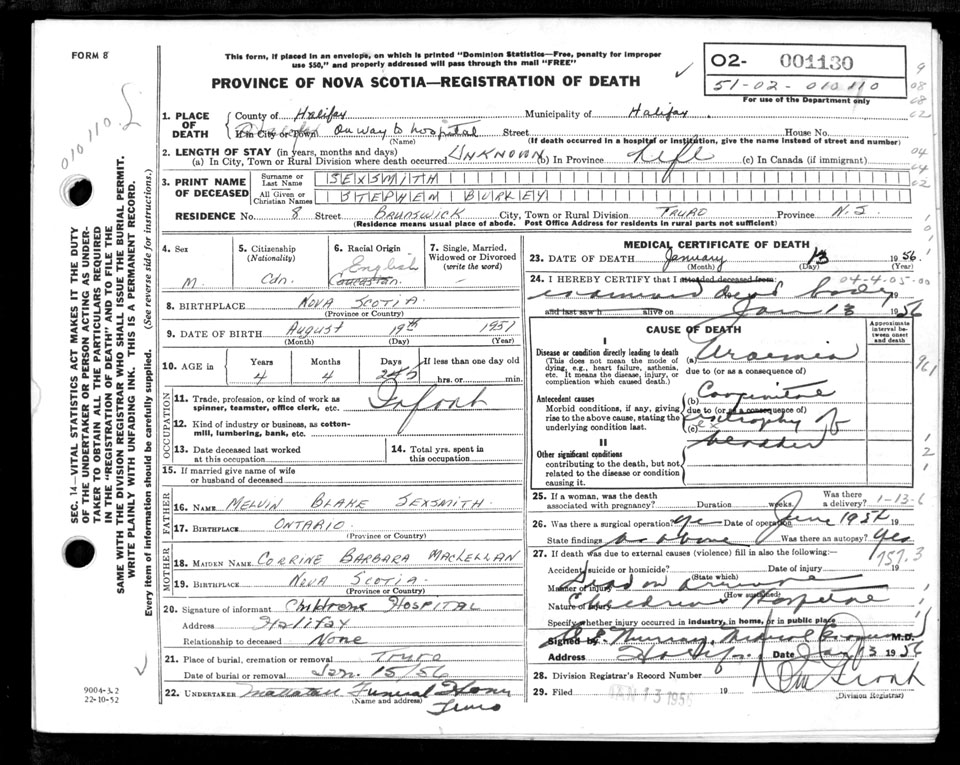 FORM 8
This form, if placed in an envelope, on which is printed "Dominion Statistics—Free, penalty for improper
use $50," and properly addressed will pass through the mail "FREE"
PROVINCE OF NOVA SCOTIA—REGISTRATION OF DEATH
O2- 001130
51-02-010110
For use of the Department only
010110
SEC. 14—VITAL STATISTICS ACT MAKES IT THE DUTY
OF THE UNDERTAKER OR PERSON ACTING AS UNDER-
TAKER TO OBTAIN ALL THE PARTICULARS REQUIRED
IN THE "REGISTRATION OF DEATH" AND TO FILE THE
SAME WITH THE DIVISION REGISTRAR WHO SHALL ISSUE THE BURIAL PERMIT.
WRITE PLAINLY WITH UNFADING INK. THIS IS A PERMANENT RECORD.
Every item of information should be carefully supplied. (See reverse side for instructions.)
1. PLACE OF DEATH
County of Halifax Municipality of Halifax
If in City or Town On way to hospital Street House No.
(Name) (If death occurred in a hospital or institution, give the name instead of street and number)
2. LENGTH OF STAY (in years, months and days)
(a) In City, Town or Rural Division where death occurred UNKNOWN (b) In Province Life (c) In Canada (if immigrant)
3. PRINT NAME OF DECEASED
Surname or Last Name SEXSMITH
All Given or Christian Names STEPHEN BURKEY
RESIDENCE No. 8 Street BRUNSWICK City, Town or Rural Division TRURO Province N.S.
(Residence means usual place of abode. Post Office Address for residents in rural parts not sufficient)
4. Sex
M.
5. Citizenship
(Nationality)
Cdn.
6. Racial Origin
English
Caucasian
7. Single, Married,
Widowed or Divorced
(write the word)
8. BIRTHPLACE NOVA SCOTIA
(Province or Country)
9. DATE OF BIRTH August 19th 1951
(Month) (Day) (Year)
10. AGE in
Years Months Days If less than one day old
4 4 hrs. or min.
OCCUPATION
11. Trade, profession, or kind of work as
spinner, teamster, office clerk, etc. Infant
12. Kind of industry or business, as cotton-
mill, lumbering, bank, etc.
13. Date deceased last worked
at this occupation
14. Total yrs. spent in
this occupation
15. If married give name of wife
or husband of deceased
FATHER
16. NAME MELVIN BLAKE SEXSMITH
17. BIRTHPLACE ONTARIO
(Province or Country)
MOTHER
18. MAIDEN NAME CORRINE BARBARA MACLELLAN
19. BIRTHPLACE NOVA SCOTIA
(Province or Country)
20. Signature of informant Childrens HOSPITAL
Address Halifax
Relationship to deceased None
21. Place of burial, cremation or removal Truro
Date of burial or removal Jan. 15/56
22. UNDERTAKER Mattatall Funeral Home
(Name and address) Truro
9004-3.2
22-10-52
MEDICAL CERTIFICATE OF DEATH
23. DATE OF DEATH January 13 1956
(Month) (Day) (Year)
24. I HEREBY CERTIFY that I attended deceased from:
04-4-05-00
examined dead body 19
and last saw h alive on Jan 13 1956
CAUSE OF DEATH
Approximate
interval be-
tween onset
and death
I
Disease or condition directly leading to death
(This does not mean the mode of
dying, e.g., heart failure, asthenia,
etc. It means the disease, injury, or
complication which caused death.)
(a) Uraemia
due to (or as a consequence of)
Antecedent causes
Morbid conditions, if any, giving
rise to the above cause, stating the
underlying condition last.
(b)
due to (or as a consequence of)
(c) bladder
II
Other significant conditions
contributing to the death, but not
related to the disease or condition
causing it.
25. If a woman, was the death
associated with pregnancy? Duration weeks. Was there
a delivery?
26. Was there a surgical operation? Yes Date of operation June 1952 19
State findings as above Was there an autopsy? Yes
27. If death was due to external causes (violence) fill in also the following:—
Accident, suicide or homicide? Date of injury 19
(State which)
757.3
Manner of injury Dead on
(How sustained)
Nature of injury Childrens Hospital
Specify whether injury occurred in industry, in home, or in public place
Signed by Murray, Medical M.D.
Address Date Jan 13 1956
28. Division Registrar's Record Number
29. Filed JAN 13 1956 19
(Division Registrar)